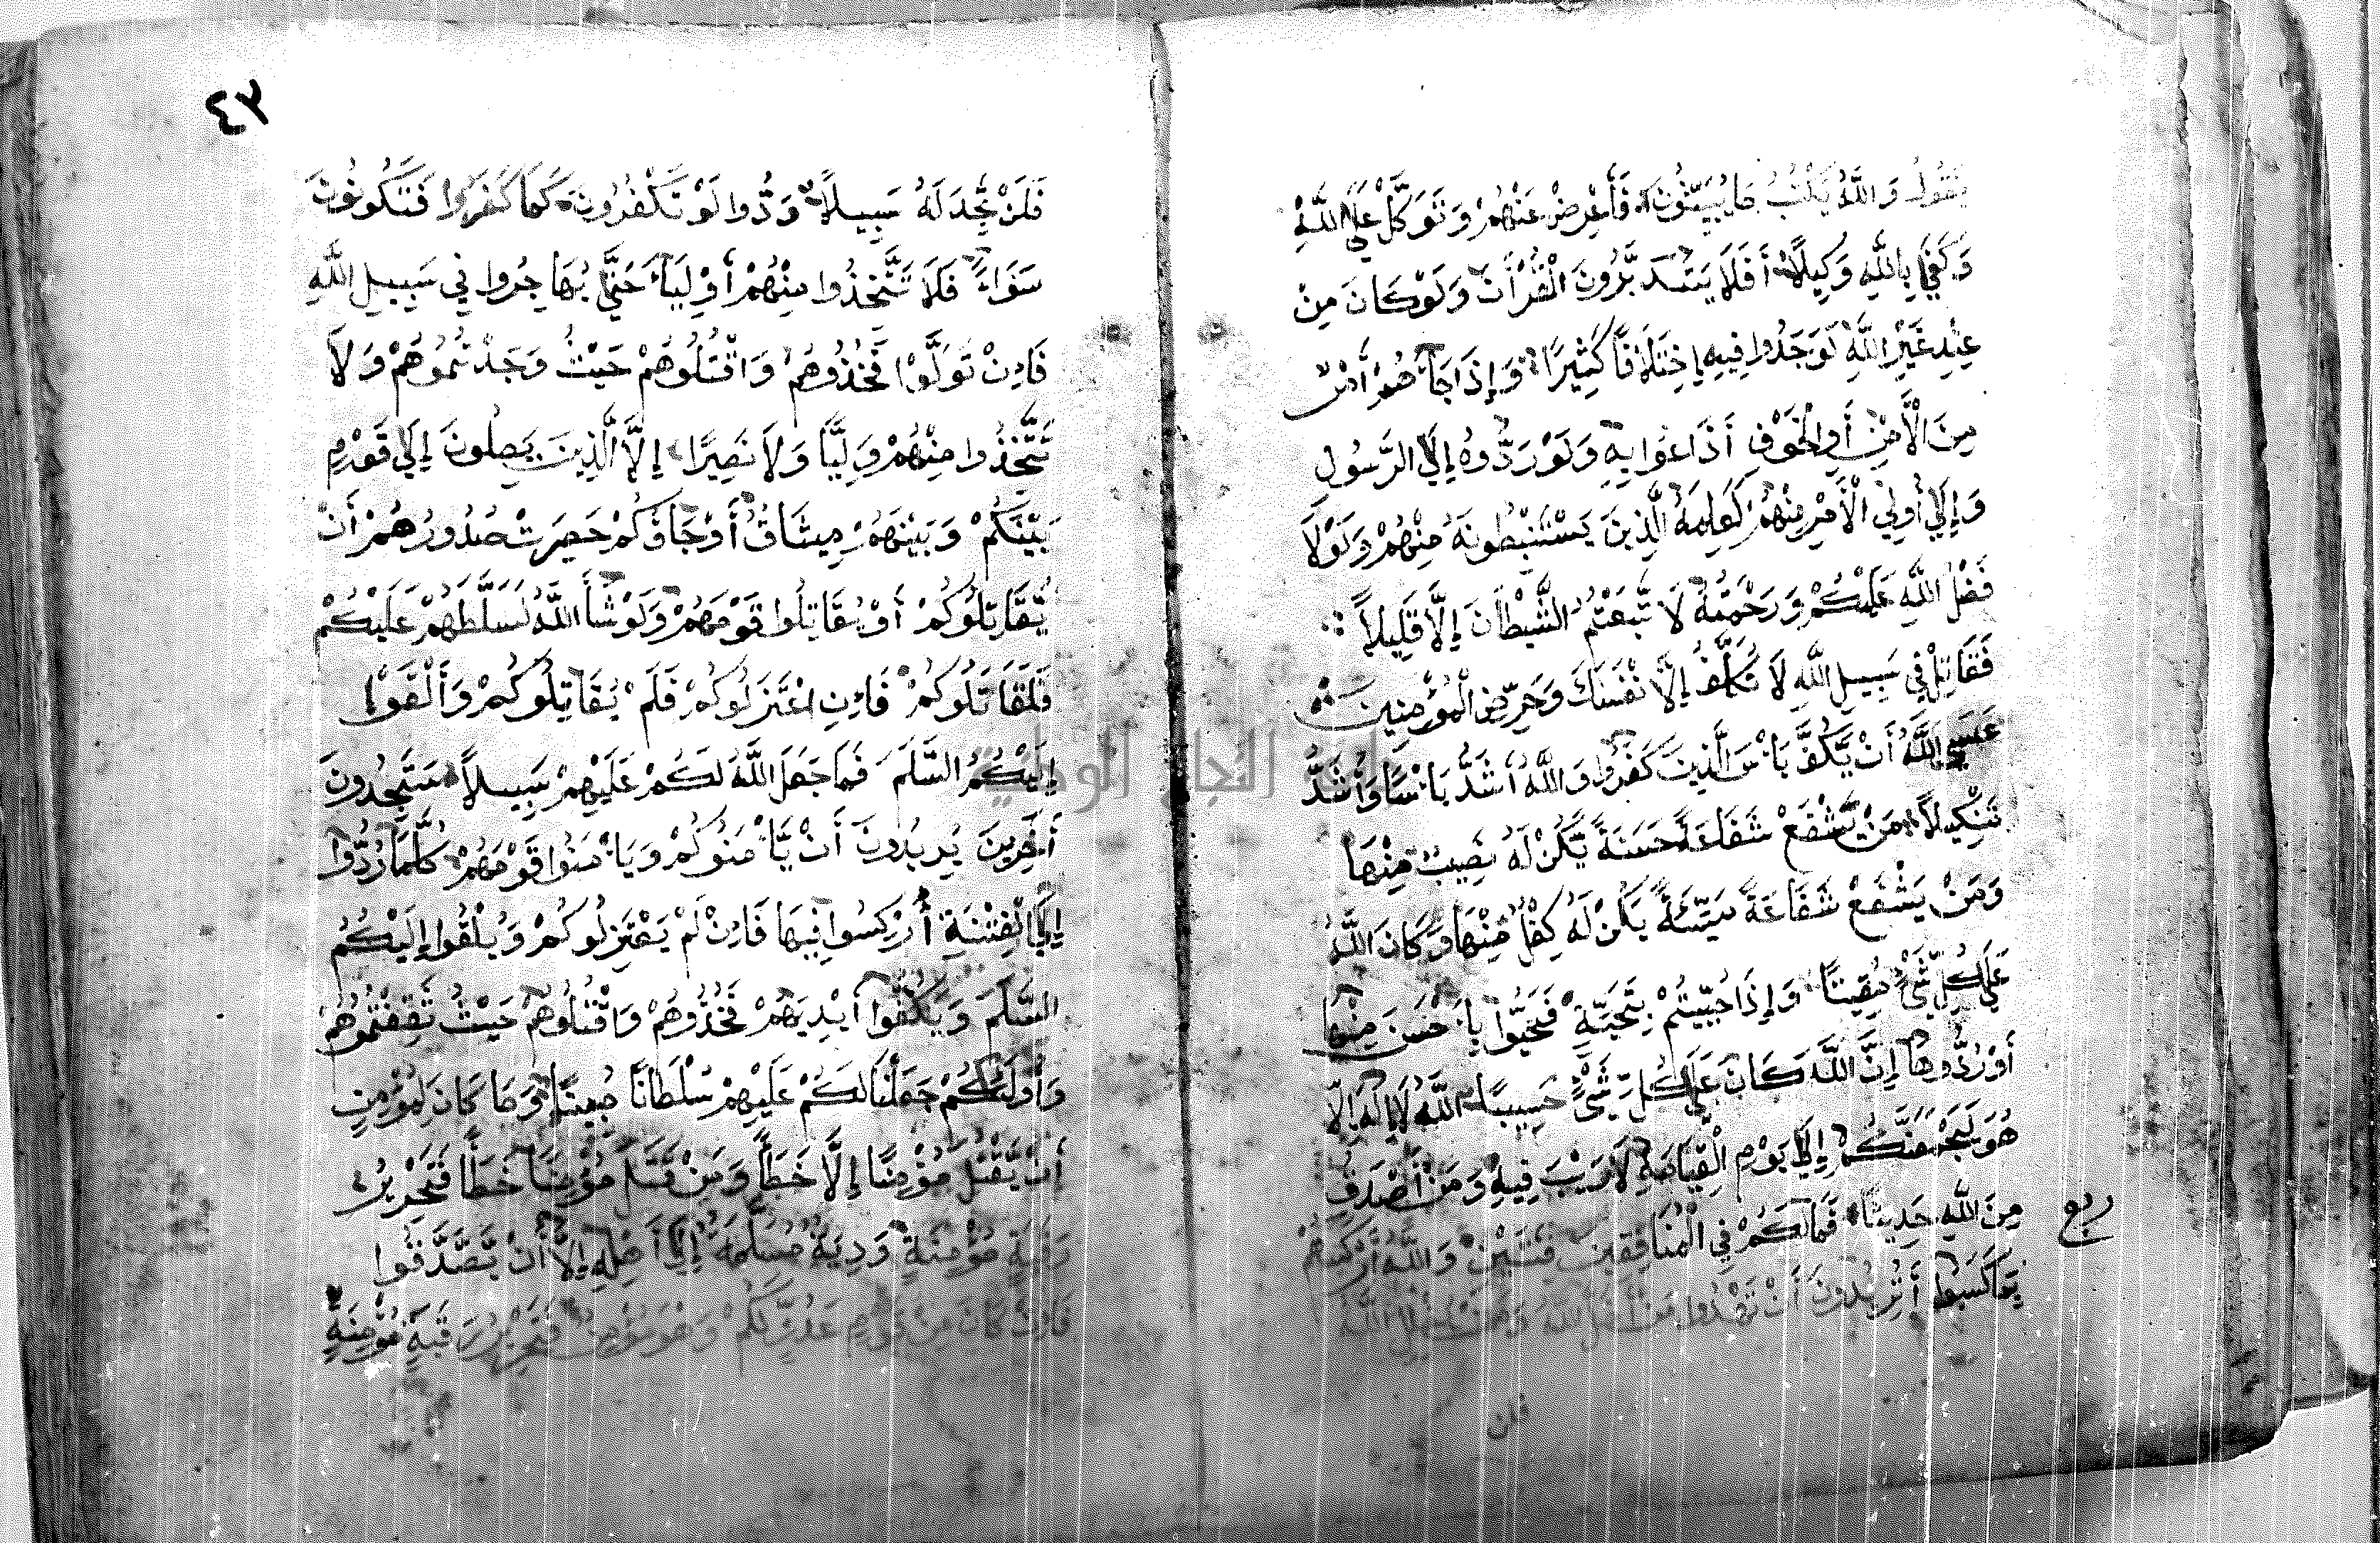 يَقُولُ وَاللَّهُ يَكْتُبُ مَا يُبَيِّتُونَ فَأَعْرِضْ عَنْهُمْ وَتَوَكَّلْ عَلَى اللَّهِ
وَكَفَى بِاللَّهِ وَكِيلًا أَفَلَا يَتَدَبَّرُونَ الْقُرْآنَ وَلَوْ كَانَ مِنْ
عِنْدِ غَيْرِ اللَّهِ لَوَجَدُوا فِيهِ اخْتِلَافًا كَثِيرًا وَإِذَا جَاءَهُمْ أَمْرٌ
مِنَ الْأَمْنِ أَوِ الْخَوْفِ أَذَاعُوا بِهِ وَلَوْ رَدُّوهُ إِلَى الرَّسُولِ
وَإِلَى أُولِي الْأَمْرِ مِنْهُمْ لَعَلِمَهُ الَّذِينَ يَسْتَنْبِطُونَهُ مِنْهُمْ وَلَوْلَا
فَضْلُ اللَّهِ عَلَيْكُمْ وَرَحْمَتُهُ لَا تَّبَعْتُمُ الشَّيْطَانَ إِلَّا قَلِيلًا
فَقَاتِلْ فِي سَبِيلِ اللَّهِ لَا تُكَلَّفُ إِلَّا نَفْسَكَ وَحَرِّضِ الْمُؤْمِنِينَ
عَسَى اللَّهُ أَنْ يَكُفَّ بَأْسَ الَّذِينَ كَفَرُوا وَاللَّهُ أَشَدُّ بَأْسًا وَأَشَدُّ
تَنْكِيلًا مَنْ يَشْفَعْ شَفَاعَةً حَسَنَةً يَكُنْ لَهُ نَصِيبٌ مِنْهَا
وَمَنْ يَشْفَعْ شَفَاعَةً سَيِّئَةً يَكُنْ لَهُ كِفْلٌ مِنْهَا وَكَانَ اللَّهُ
عَلَى كُلِّ شَيْءٍ مُقِيتًا وَإِذَا حُيِّيتُمْ بِتَحِيَّةٍ فَحَيُّوا بِأَحْسَنَ مِنْهَا
أَوْ رُدُّوهَا إِنَّ اللَّهَ كَانَ عَلَى كُلِّ شَيْءٍ حَسِيبًا اللَّهُ لَا إِلَهَ إِلَّا
هُوَ لَيَجْمَعَنَّكُمْ إِلَى يَوْمِ الْقِيَامَةِ لَا رَيْبَ فِيهِ وَمَنْ أَصْدَقُ
مِنَ اللَّهِ حَدِيثًا فَمَا لَكُمْ فِي الْمُنَافِقِينَ فِئَتَيْنِ وَاللَّهُ أَرْكَسَهُمْ
ربع
بِمَا كَسَبُوا أَتُرِيدُونَ أَنْ تَهْدُوا مَنْ أَضَلَّ اللَّهُ وَمَنْ يُضْلِلِ اللَّهُ
فلن
٤٣
فَلَنْ تَجِدَ لَهُ سَبِيلًا وَدُّوا لَوْ تَكْفُرُونَ كَمَا كَفَرُوا فَتَكُونُونَ
سَوَاءً فَلَا تَتَّخِذُوا مِنْهُمْ أَوْلِيَاءَ حَتَّى يُهَاجِرُوا فِي سَبِيلِ اللَّهِ
فَإِنْ تَوَلَّوْا فَخُذُوهُمْ وَاقْتُلُوهُمْ حَيْثُ وَجَدْتُمُوهُمْ وَلَا
تَتَّخِذُوا مِنْهُمْ وَلِيًّا وَلَا نَصِيرًا إِلَّا الَّذِينَ يَصِلُونَ إِلَى قَوْمٍ
بَيْنَكُمْ وَبَيْنَهُمْ مِيثَاقٌ أَوْ جَاؤُكُمْ حَصِرَتْ صُدُورُهُمْ أَنْ
يُقَاتِلُوكُمْ أَوْ يُقَاتِلُوا قَوْمَهُمْ وَلَوْ شَاءَ اللَّهُ لَسَلَّطَهُمْ عَلَيْكُمْ
فَلَقَاتَلُوكُمْ فَإِنِ اعْتَزَلُوكُمْ فَلَمْ يُقَاتِلُوكُمْ وَأَلْقَوْا
إِلَيْكُمُ السَّلَمَ فَمَا جَعَلَ اللَّهُ لَكُمْ عَلَيْهِمْ سَبِيلًا سَتَجِدُونَ
آخَرِينَ يُرِيدُونَ أَنْ يَأْمَنُوكُمْ وَيَأْمَنُوا قَوْمَهُمْ كُلَّمَا رُدُّوا
إِلَى الْفِتْنَةِ أُرْكِسُوا فِيهَا فَإِنْ لَمْ يَعْتَزِلُوكُمْ وَيُلْقُوا إِلَيْكُمُ
السَّلَمَ وَيَكُفُّوا أَيْدِيَهُمْ فَخُذُوهُمْ وَاقْتُلُوهُمْ حَيْثُ ثَقِفْتُمُوهُمْ
وَأُولَئِكُمْ جَعَلْنَا لَكُمْ عَلَيْهِمْ سُلْطَانًا مُبِينًا وَمَا كَانَ لِمُؤْمِنٍ
أَنْ يَقْتُلَ مُؤْمِنًا إِلَّا خَطَأً وَمَنْ قَتَلَ مُؤْمِنًا خَطَأً فَتَحْرِيرُ
رَقَبَةٍ مُؤْمِنَةٍ وَدِيَةٌ مُسَلَّمَةٌ إِلَى أَهْلِهِ إِلَّا أَنْ يَصَّدَّقُوا
فَإِنْ كَانَ مِنْ قَوْمٍ عَدُوٍّ لَكُمْ وَهُوَ مُؤْمِنٌ فَتَحْرِيرُ رَقَبَةٍ مُؤْمِنَةٍ